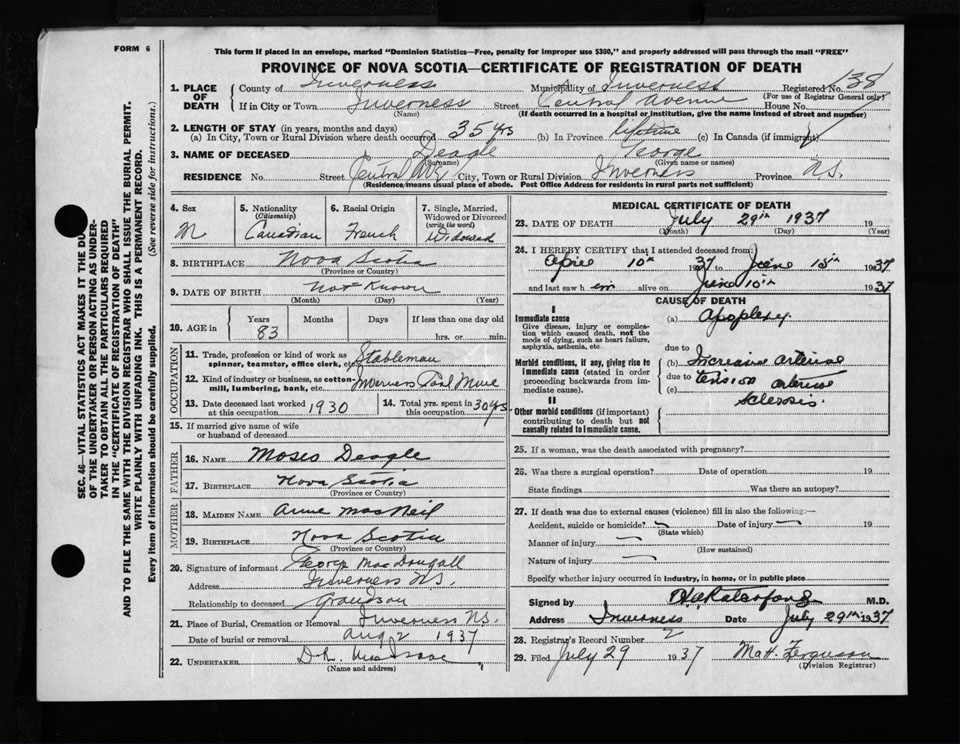 FORM 6
This form if placed in an envelope, marked "Dominion Statistics—Free, penalty for improper use $300," and properly addressed will pass through the mail "FREE"
PROVINCE OF NOVA SCOTIA—CERTIFICATE OF REGISTRATION OF DEATH
1. PLACE OF DEATH
County of Inverness Municipality of Inverness Registered No. 138
(For use of Registrar General only)
If in City or Town Inverness Street Central Avenue House No.
(Name) (If death occurred in a hospital or institution, give the name instead of street and number)
2. LENGTH OF STAY (in years, months and days)
(a) In City, Town or Rural Division where death occurred 35 yrs (b) In Province lifetime (c) In Canada (if immigrant)
3. NAME OF DECEASED Deagle George
(Surname) (Given name or names)
RESIDENCE No. Street Central Ave City, Town or Rural Division Inverness Province N.S.
(Residence means usual place of abode. Post Office Address for residents in rural parts not sufficient)
4. Sex M
5. Nationality (Citizenship) Canadian
6. Racial Origin French
7. Single, Married, Widowed or Divorced (write the word) Widowed
8. BIRTHPLACE Nova Scotia
(Province or Country)
9. DATE OF BIRTH Not Known
(Month) (Day) (Year)
10. AGE in Years Months Days If less than one day old
83 hrs. or min.
OCCUPATION
11. Trade, profession or kind of work as spinner, teamster, office clerk, etc. Stableman
12. Kind of industry or business, as cotton mill, lumbering, bank, etc. Inverness Coal Mine
13. Date deceased last worked at this occupation 1930
14. Total yrs. spent in this occupation 30 yrs
15. If married give name of wife or husband of deceased
FATHER
16. NAME Moses Deagle
17. BIRTHPLACE Nova Scotia
(Province or Country)
MOTHER
18. MAIDEN NAME Anne MacNeil
19. BIRTHPLACE Nova Scotia
(Province or Country)
20. Signature of informant George MacDougall
Address Inverness N.S.
Relationship to deceased Grandson
21. Place of Burial, Cremation or Removal Inverness N.S.
Date of burial or removal Aug 2 1937
22. UNDERTAKER D. R.
(Name and address)
MEDICAL CERTIFICATE OF DEATH
23. DATE OF DEATH July 29th 1937 19
(Month) (Day) (Year)
24. I HEREBY CERTIFY that I attended deceased from:
April 10th 1937 to June 15th 1937
and last saw him alive on June 10th 1937
CAUSE OF DEATH
I
Immediate cause (a) Apoplexy
Give disease, injury or complication which caused death, not the mode of dying, such as heart failure, asphyxia, asthenia, etc.
due to
Morbid conditions, if any, giving rise to immediate cause (stated in order proceeding backwards from immediate cause).
(b) Increasing arterial
due to tension
(c) arterio
Sclerosis
II
Other morbid conditions (if important) contributing to death but not causally related to immediate cause.
25. If a woman, was the death associated with pregnancy?
26. Was there a surgical operation? Date of operation 19
State findings Was there an autopsy?
27. If death was due to external causes (violence) fill in also the following:—
Accident, suicide or homicide? Date of injury 19
(State which)
Manner of injury
(How sustained)
Nature of injury
Specify whether injury occurred in industry, in home, or in public place
Signed by M.D.
Address Inverness Date July 29th 1937
28. Registrar's Record Number 2
29. Filed July 29 1937 M. H. Ferguson
(Division Registrar)
SEC. 46—VITAL STATISTICS ACT MAKES IT THE DU
OF THE UNDERTAKER OR PERSON ACTING AS UNDER-
TAKER TO OBTAIN ALL THE PARTICULARS REQUIRED
IN THE "CERTIFICATE OF REGISTRATION OF DEATH"
AND TO FILE THE SAME WITH THE DIVISION REGISTRAR WHO SHALL ISSUE THE BURIAL PERMIT.
WRITE PLAINLY WITH UNFADING INK. THIS IS A PERMANENT RECORD.
Every item of information should be carefully supplied. (See reverse side for instructions.)